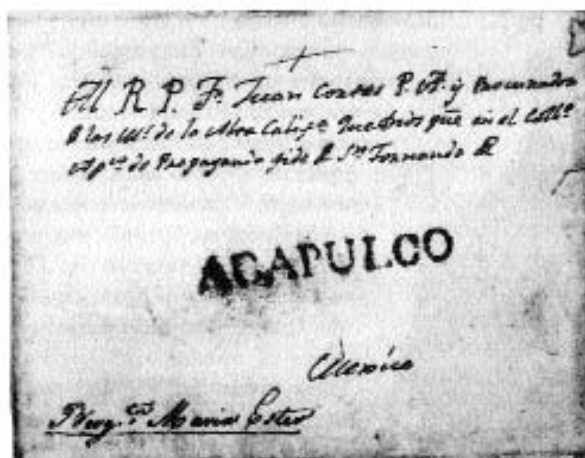 Al R P. Fr. Juan Cortes P. Ap. y Procurador
de las de la Alva Calif.ª que Dios gue en el Coll.º
App.co de Propaganda fide de Sn Fernando de
ACAPULCO
Mexico
Maria Ester